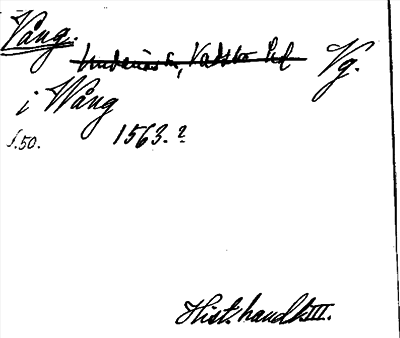 Vång. Undenäs sn, Vadsbo hd Vg.
i Wång
s. 50. 1563. ?
Hist. handl. III.